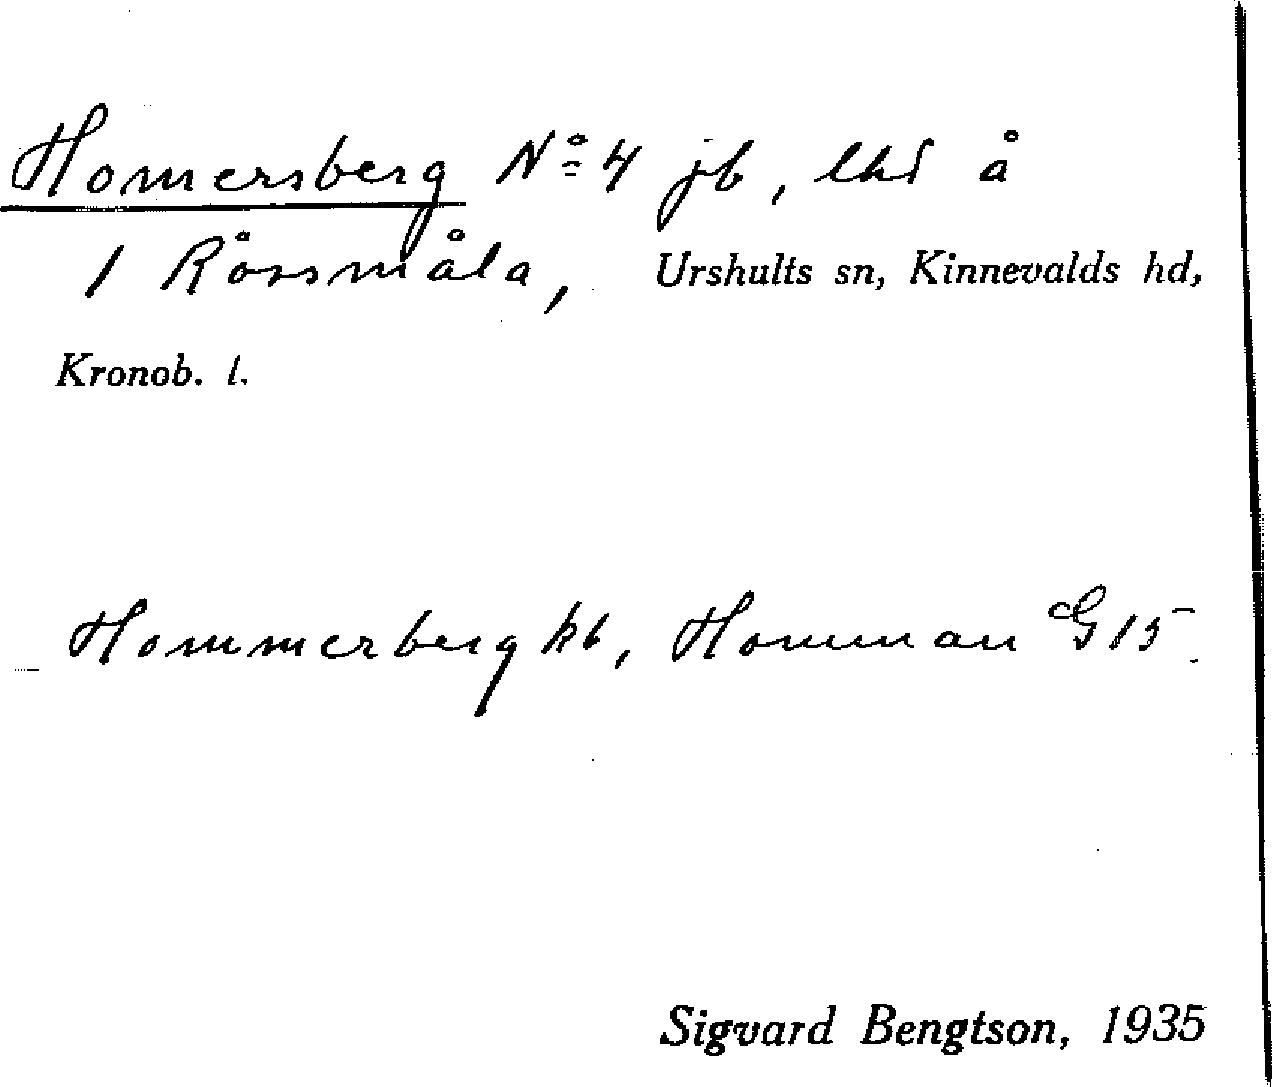 Homersberg Nº 4 jb, lhd å
1 Rössmåla, Urshults sn, Kinnevalds hd,
Kronob. l.
Hommerberg kb, Homman G 15
Sigvard Bengtson, 1935